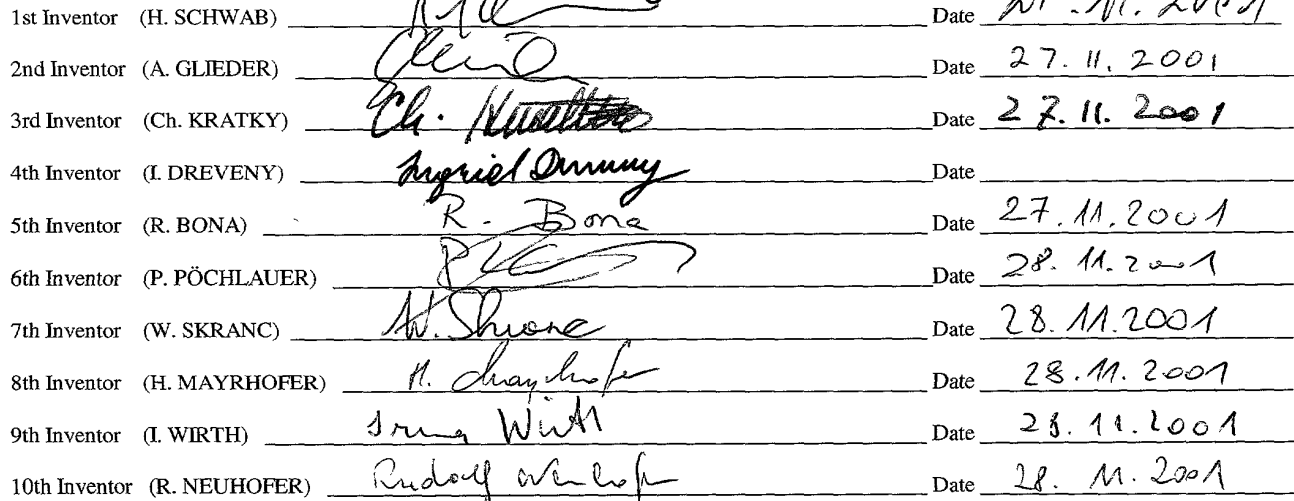 1st Inventor (H. SCHWAB) Date 11. 2001
2nd Inventor (A. GLIEDER) Date 27. 11. 2001
3rd Inventor (Ch. KRATKY) Ch. Date 27. 11. 2001
4th Inventor (I. DREVENY) Ingrid Dreveny Date
5th Inventor (R. BONA) R. Bona Date 27. 11. 2001
6th Inventor (P. PÖCHLAUER) Date 28. 11. 2001
7th Inventor (W. SKRANC) W. Skranc Date 28. 11. 2001
8th Inventor (H. MAYRHOFER) H. Mayrhofer Date 28. 11. 2001
9th Inventor (I. WIRTH) Irma Wirth Date 28. 11. 2001
10th Inventor (R. NEUHOFER) Rudolf Neuhofer Date 28. 11. 2001